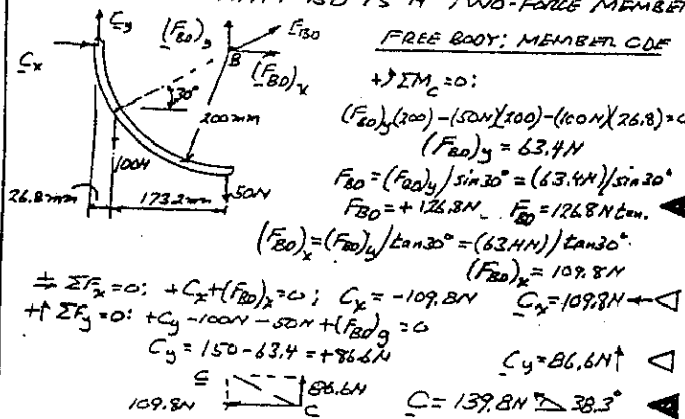 BD IS A TWO-FORCE MEMBER
FREE BODY: MEMBER CDE
Cy
(FBD)y
FBD
Cx
B
(FBD)x
30°
200mm
100N
50N
26.8mm
173.2mm
+↺ ΣMC=0:
(FBD)y(200)-(50N)(200)-(100N)(26.8)=0
(FBD)y = 63.4N
FBD=(FBD)y/sin30°=(63.4N)/sin30°
FBD=+126.8N FBD=126.8N ten. ◀
(FBD)x=(FBD)y/tan30°=(63.4N)/tan30°
(FBD)x=109.8N
+→ ΣFx=0: +Cx+(FBD)x=0; Cx=-109.8N Cx=109.8N← ◁
+↑ ΣFy=0: +Cy-100N-50N+(FBD)y=0
Cy=150-63.4=+86.6N Cy=86.6N↑ ◁
C
86.6N
109.8N
C
C=139.8N 38.3° ◀